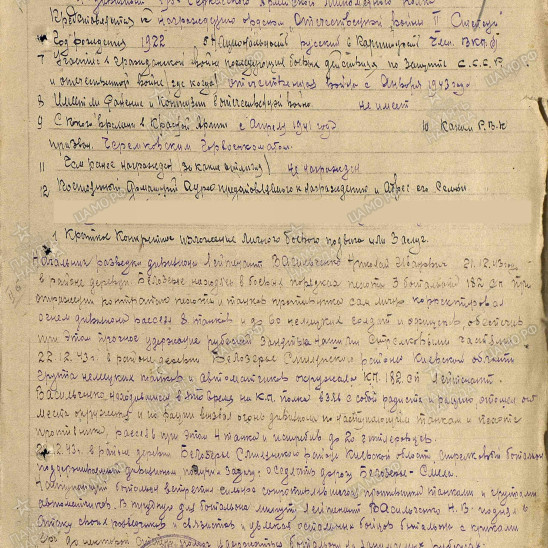 Представляется к награждению орденом Отечественной войны II степени
Год рождения 1922 5 Национальность русский 6 Партийность Член ВКП(б)
7 Участие в гражданской войне последующие боевые действиях по защите С.С.С.Р.
и отечественной войне (где когда) отечественная война с Января 1943 года
8 Имеет ли ранения и контузии в отечественной войне не имеет
9 С какого времени в Красной Армии с Апреля 1941 года 10 Каким Р.В.К
призван Черемховским Горвоенкоматом.
11 Чем ранее награжден (за какие отличия) не награжден
12 Постоянный домашний адрес представляемого к награждению и адрес его семьи
1 Краткое конкретное изложение личного боевого подвига или заслуг.
Начальник разведки дивизиона Лейтенант Васильченко Николай 21.12.43 года
в районе деревни Белозерье находясь в боевых порядках пехоты 3 батальона 182 сп при
пехоты и танков противника сам лично корректировал
огнем дивизиона рассеял 8 танков и до 60 немецких солдат и офицеров, обеспечив
при этом прочное удержание рубежей занятых нашими стрелковыми частями
22.12.43 г. в районе деревни Белозерье Смилянского района Киевской области
группа немецких танков и автоматчиков окружала К.П. 182 сп Лейтенант
Васильченко находившийся в это время на К.П. полка взял с собой радиста и рацию
место окружения и по рации вызвал огонь дивизиона по наступающим танкам и пехоте
противника, рассеяв при этом 4 танка и истребив до 20 гитлеровцев.
12.43г. в районе деревни Белозерье Смилянского района Киевской области стрелковый батальон
поддерживаемый дивизионом получил задачу оседлать дорогу Белозерье - Смела.
Наступающий батальон встретил сильное сопротивление противника танками и группами
автоматчиков. В трудную для батальона минуту Лейтенант Васильченко Н. поднял в
атаку своих разведчиков и связистов и увлекая остальных бойцов батальона с криками